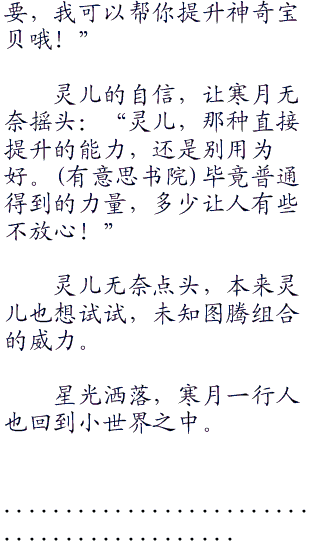 要，我可以帮你提升神奇宝
贝哦！”
灵儿的自信，让寒月无
奈摇头：“灵儿，那种直接
提升的能力，还是别用为
好。(有意思书院)毕竟普通
得到的力量，多少让人有些
不放心！”
灵儿无奈点头，本来灵
儿也想试试，未知图腾组合
的威力。
星光洒落，寒月一行人
也回到小世界之中。
.........................
...................